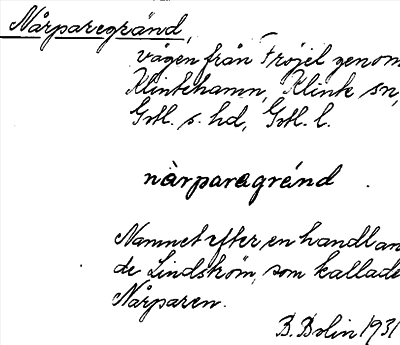 Nårparegränd,
vägen från Fröjel genom
Klintehamn, Klinte sn,
Gotl. s. hd, Gotl. l.
nàrparagrénd .
Namnet efter en handlan
de Lindström, som kallade
Nårparen.
B. Bolin 1931